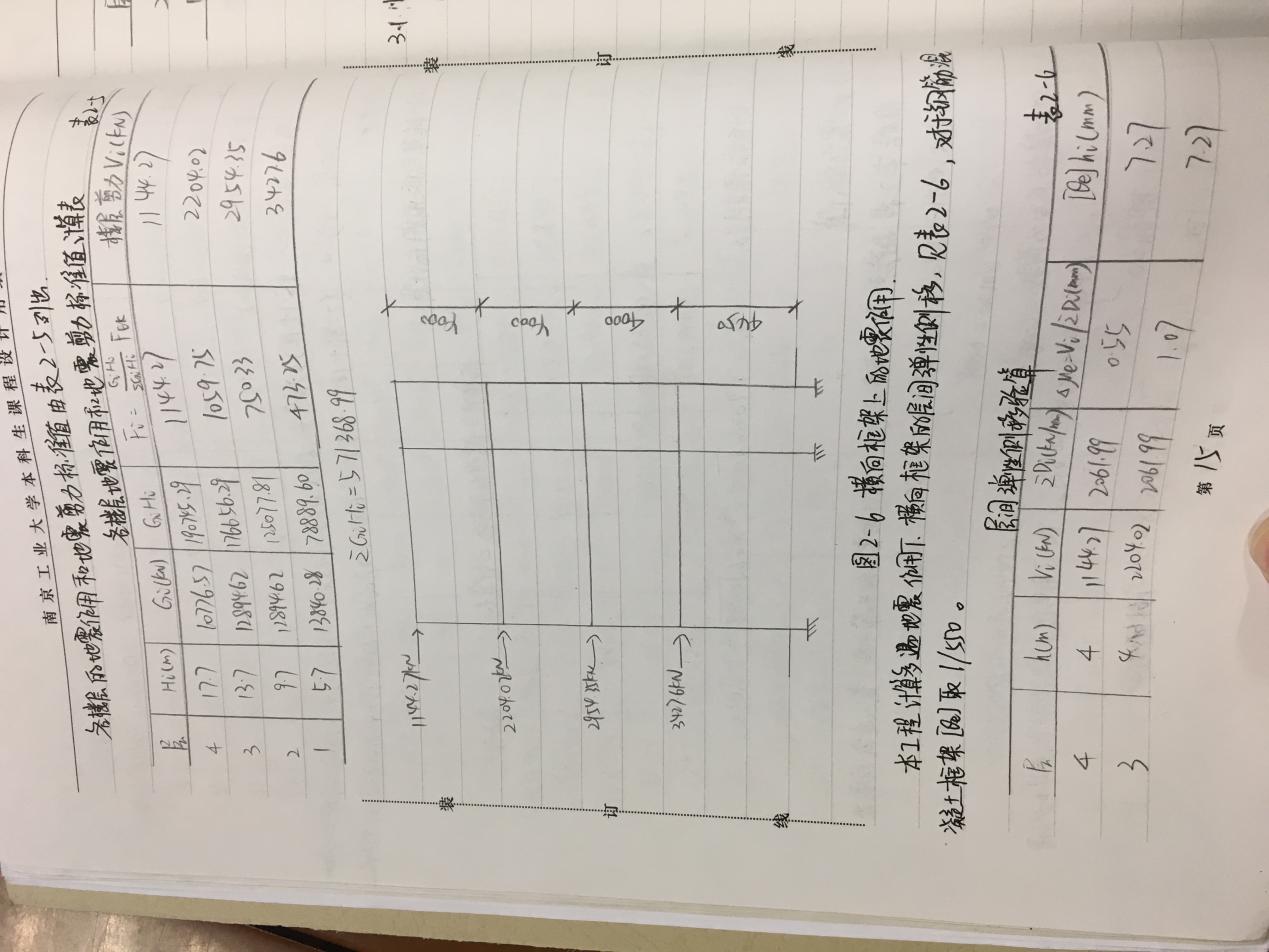 南京工业大学本科生课程设计用纸
各楼层的地震作用和地震剪力标准值由表2-5列出.
各楼层地震作用和地震剪力标准值计算表 表2-5
层 Hi(m) Gi(kN) GiHi Fi = GiHi/ΣGiHi FEK 楼层剪力Vi(kN)
4 17.7 10776.57 190745.29 1144.27 1144.27
3 13.7 12894.62 176656.29 1059.75 2204.02
2 9.7 12894.62 125077.81 750.33 2954.35
1 5.7 13840.28 78889.60 473.25 3427.6
ΣGiHi=571368.99
1144.27kN
2204.02kN
2954.35kN
3427.6kN
4000
4000
图2-6 横向框架上的地震作用.
本工程计算多遇地震作用下,横向框架的层间弹性侧移,见表2-6,对于钢筋混
凝土框架[θe]取1/550。
层间弹性侧移验算 表2-6
层 h(m) Vi(kN) ΣDi(kN/mm) Δμe=Vi/ΣDi(mm) [θe]hi(mm)
4 4 1144.27 2061.99 0.55 7.27
3 4 2204.02 2061.99 1.07 7.27
装
订
线
装
订
线
第15页
3.1